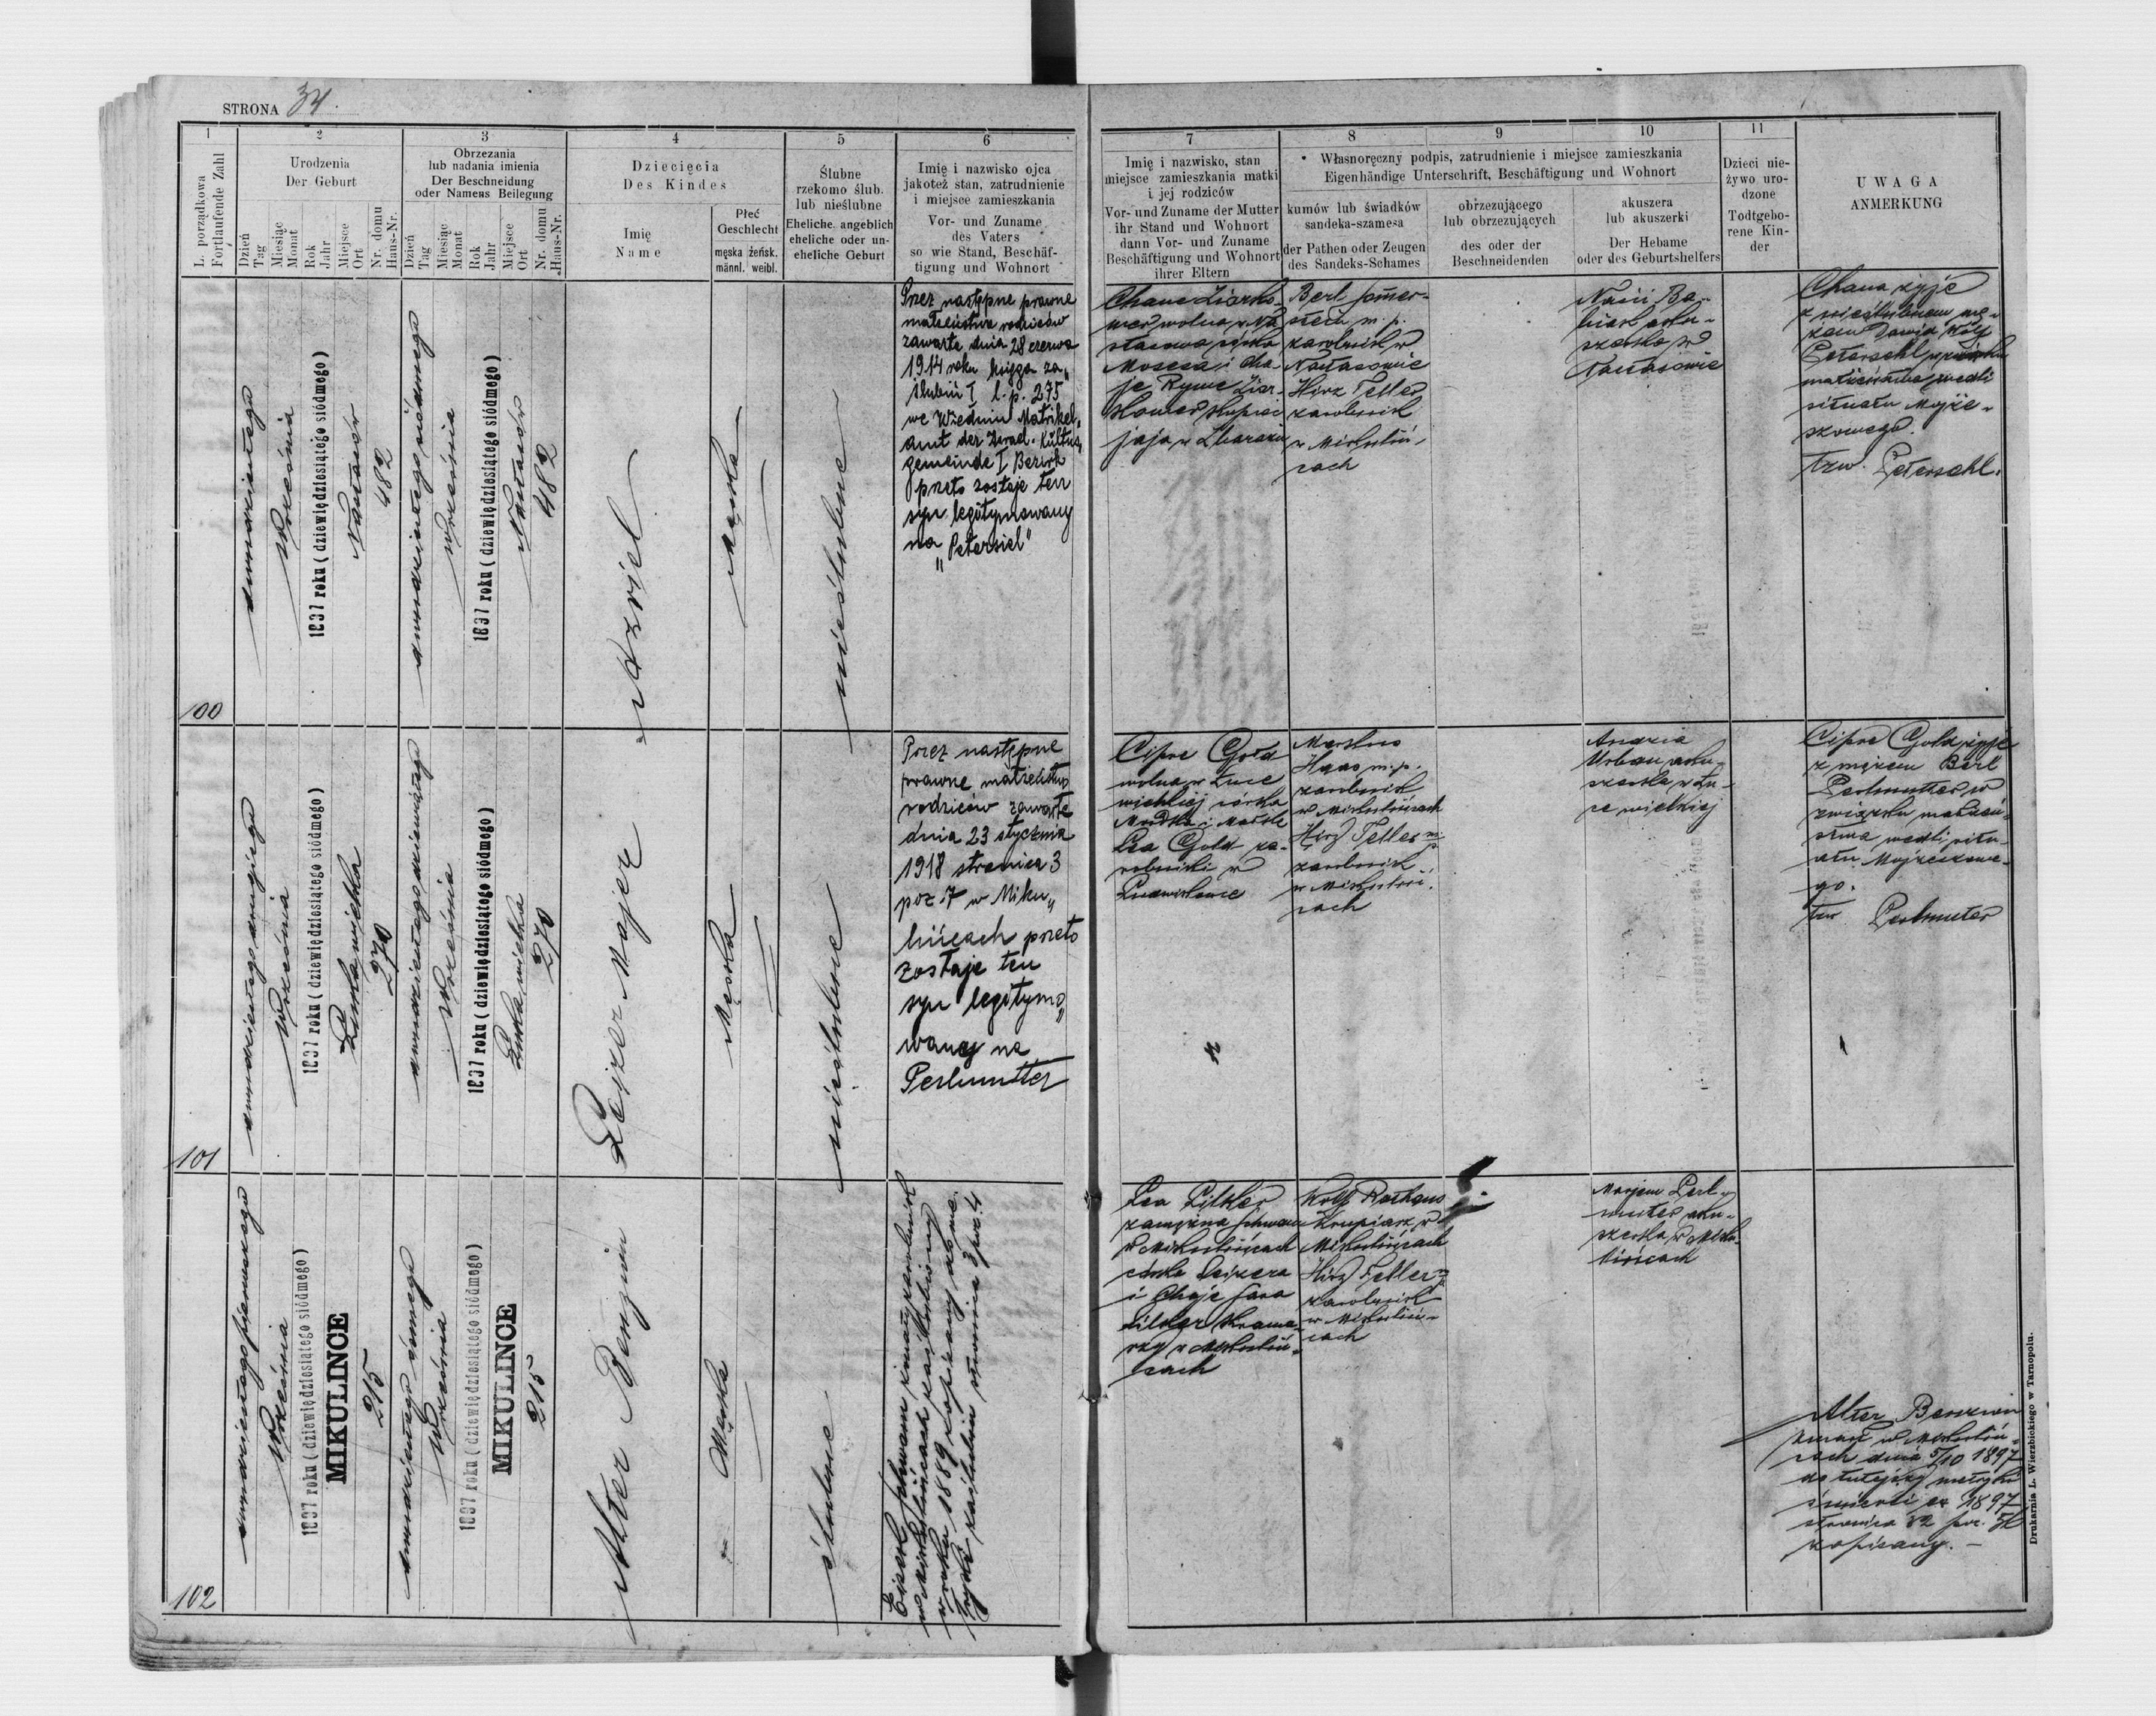 STRONA 34.
1
L. porządkowa
Fortlaufende Zahl
2
Urodzenia
Der Geburt
Dzień
Tag
Miesiąc
Monat
Rok
Jahr
Miejsce
Ort
Nr. domu
Haus-Nr.
3
Obrzezania
lub nadania imienia
Der Beschneidung
oder Namens Beilegung
Dzień
Tag
Miesiąc
Monat
Rok
Jahr
Miejsce
Ort
Nr. domu
Haus-Nr.
4
Dziecięcia
Des Kindes
Imię
Name
Płeć
Geschlecht
męska żeńsk.
männl. weibl.
5
Ślubne
rzekomo ślub.
lub nieślubne
Eheliche angeblich
eheliche oder un-
eheliche Geburt
6
Imię i nazwisko ojca
jakoteż stan, zatrudnienie
i miejsce zamieszkania
Vor- und Zuname
des Vaters
so wie Stand, Beschäf-
tigung und Wohnort
7
Imię i nazwisko, stan
miejsce zamieszkania matki
i jej rodziców
Vor- und Zuname der Mutter
ihr Stand und Wohnort
dann Vor- und Zuname
Beschäftigung und Wohnort
ihrer Eltern
8
9
10
Własnoręczny podpis, zatrudnienie i miejsce zamieszkania
Eigenhändige Unterschrift, Beschäftigung und Wohnort
kumów lub świadków
sandeka-szamesa
der Pathen oder Zeugen
des Sandeks-Schames
obrzezującego
lub obrzezujących
des oder der
Beschneidenden
akuszera
lub akuszerki
Der Hebame
oder des Geburtshelfers
11
Dzieci nie-
żywo uro-
dzone
Todtgebo-
rene Kin-
der
UWAGA
ANMERKUNG
100
dwudziestego
Września
1897 roku (dziewiędziesiątego siódmego)
Nastasów
482
dwudziestego siódmego
września
1897 roku (dziewiędziesiątego siódmego)
Nastasów
482
Azriel
Męska
nieślubne
Przez następne prawne
małżeństwo rodziców
zawarte dnia 28 czerwca
1914 roku księga za„
ślubin I l. p. 275
we Wiedniu Matrikel„
amt der Israel. Kultus„
gemeinde I Bezirk
przeto zostaje ten
syn legitymowany
na
„Petersiel"
Chane
wolna w Na
stasowie córka
Mosesa i Cha
je Rywe
w Zbarażu
Berl
m. p.
zarobnik w
Nastasowie
Hirz Teller
zarobnik
w Mikuliń„
cach
Akuszerka w
Nastasowie
Chana żyje
z nieślubnym mę„
żem Dawid Wolf
Petersehl w związku
małżeństwa wedli
rituału Mojże„
szowego.
tzw. Petersehl.
101
dwudziestego drugiego
Września
1897 roku (dziewiędziesiątego siódmego)
Łuka wielka
270
dwudziestego dziewiątego
Września
1897 roku (dziewiędziesiątego siódmego)
Łuka wielka
270
Lejzer Majer
Męska
nieślubne
Przez następne
prawne małżeństwo
rodziców zawarte
dnia 23 stycznia
1918 stronica 3
poz 7 w Miku„
lińcach przeto
zostaje ten
syn legitymo„
wany na
Perlmutter
Cipre Gold
wolna w Łuce
wielkiej córka
Lea Gold za-
robnicki w
Haas m. p.
zarobnik
w Mikulińcach
Hirz Teller m. p.
zarobnik
w Mikuliń„
cach
Urban aku„
szerka w Łu„
ce wielkiej
Cipre Gold żyje
z mężem Berl
Perlmutter w
związku małżeń„
stwa wedli ritu„
ału Mojżeszowe„
go.
tzw Perlmutter
102
dwudziestego pierwszego
Września
1897 roku (dziewiędziesiątego siódmego)
MIKULINCE
215
dwudziestego ósmego
Września
1897 roku (dziewiędziesiątego siódmego)
MIKULINCE
215
Alter Benzion
Męska
ślubne
w Mikulińcach zaślubiony
w roku 1889 zapisany
zaślubin stronica 3 poz. 4
Lea
zamężna
w Mikulińcach
córka Leizera
i Chaje Sara
w Mikuliń„
cach
Wolf Rathaus
krupiarz w
Mikulińcach
Hirz Teller
zarobnik
w Mikuliń„
cach
Marjem Perl„
muter aku„
szerka w Miku„
lińcach
Alter Benzion
zmarł w Mikuliń„
cach dnia 5/10 1897
do tutejszej metryki
śmierci ex 1897
stronica 32 poz.
zapisany.
Drukarnia L. Wierzbickiego w Tarnopolu.